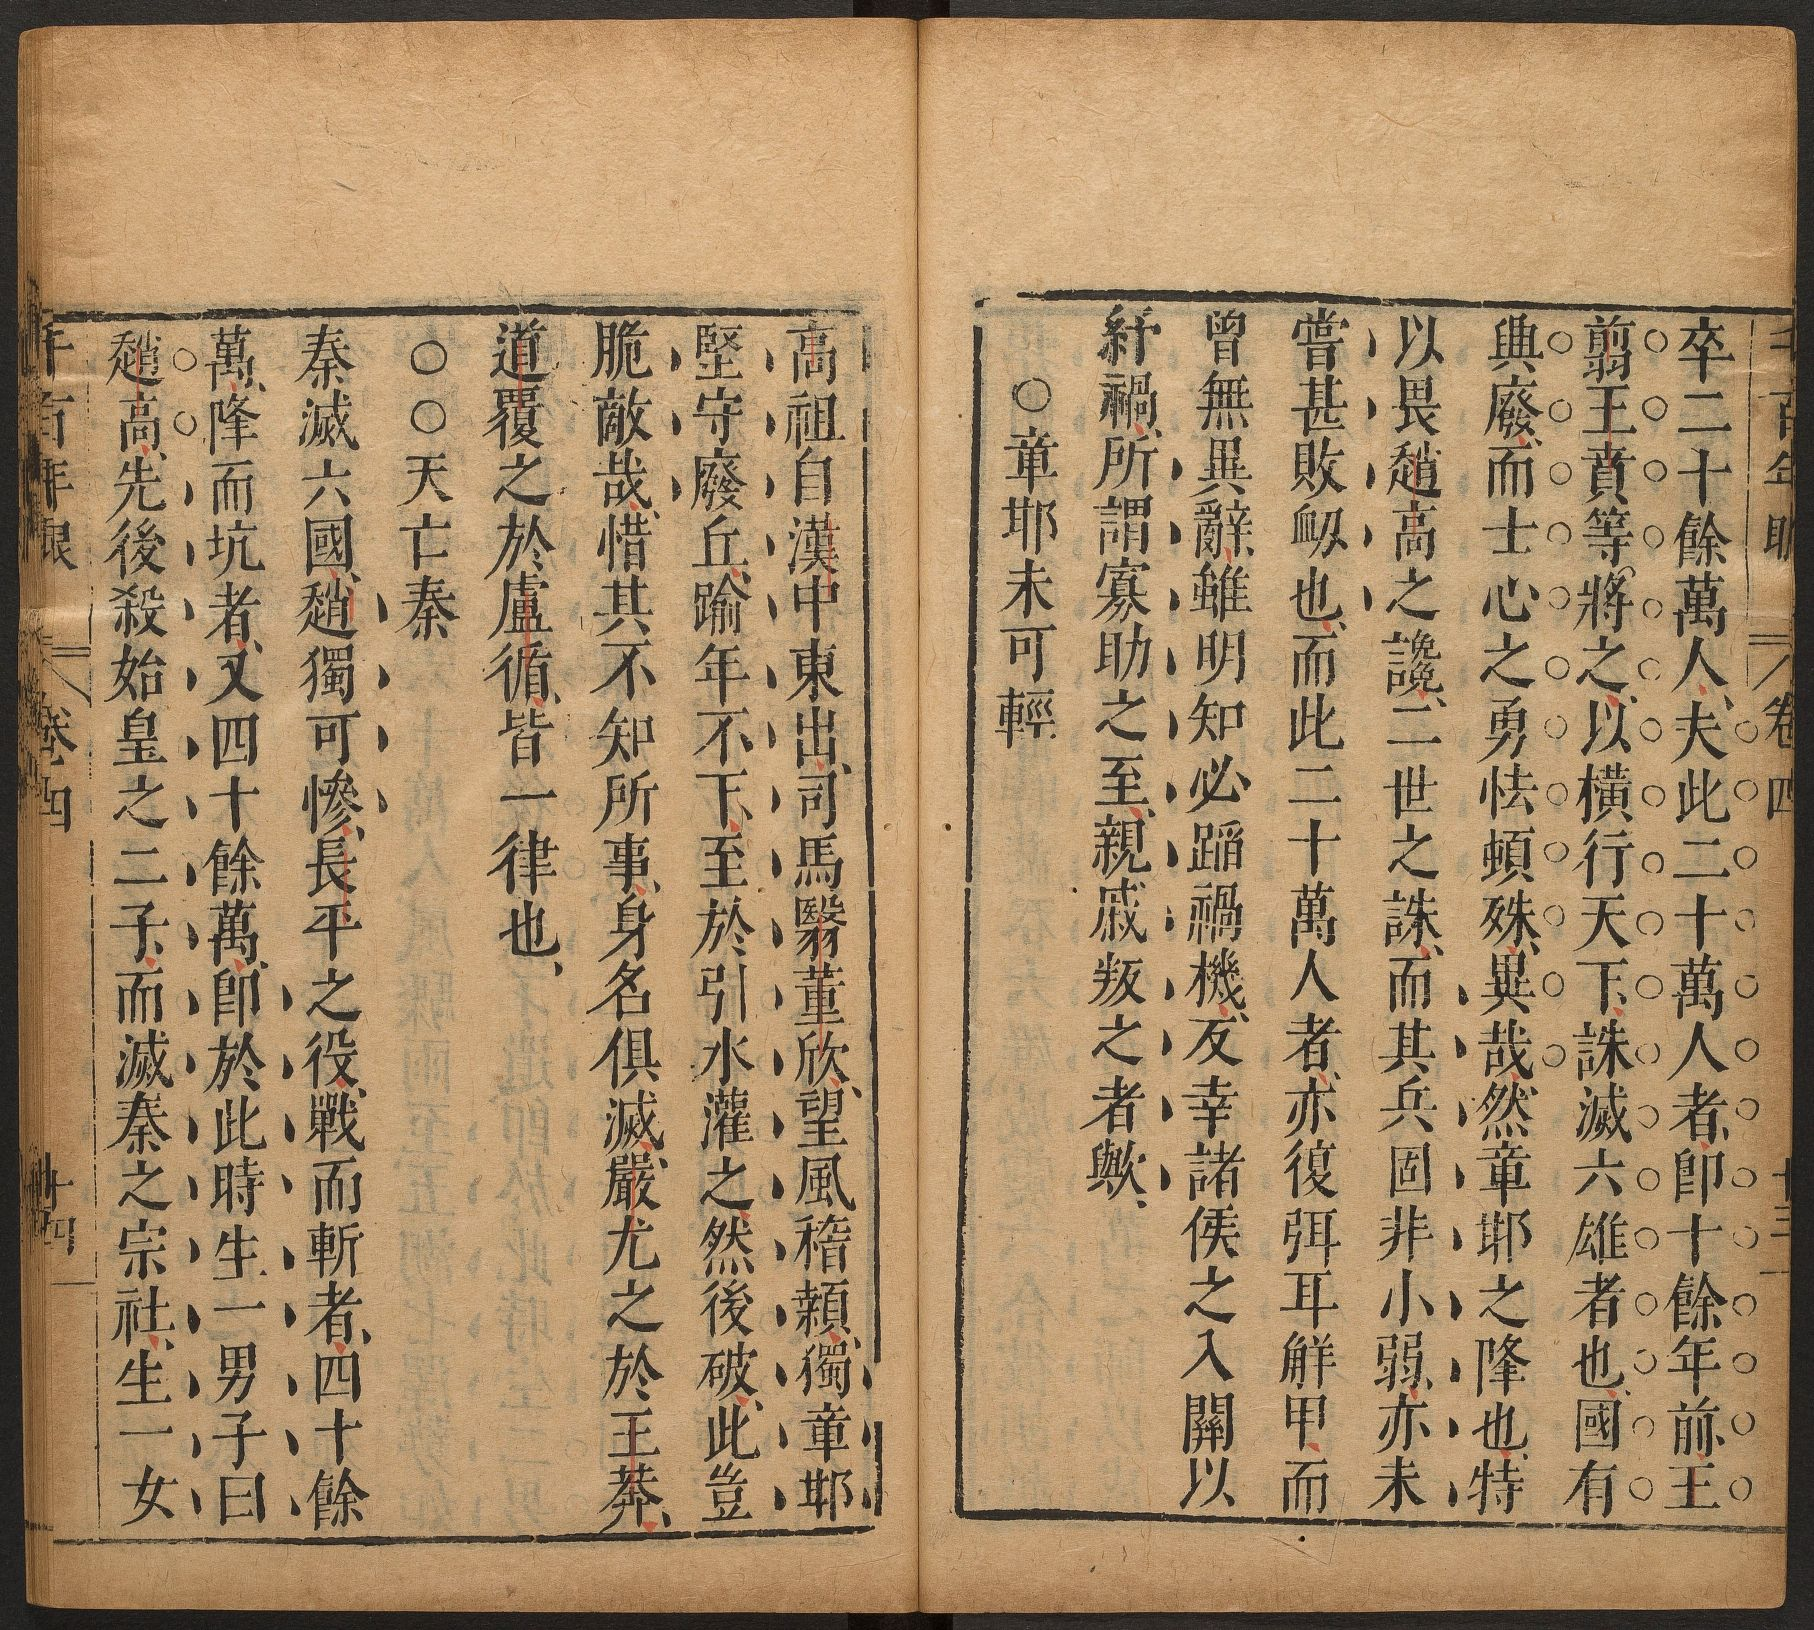 千百年眼 卷四 十三
卒二十餘萬人、夫此二十萬人者、卽十餘年前、王
翦王賁等、將之、以橫行天下、誅滅六雄者也、國有
興廢、而士心之勇怯頓殊、異哉、然章邯之降也、特
以畏趙高之讒、二世之誅、而其兵固非小弱、亦未
嘗甚敗衂也、而此二十萬人者、亦復弭耳解甲、而
曾無異辭、雖明知必蹈禍機、反幸諸侯之入關以
紓禍、所謂寡助之至、親戚叛之者歟、
○章邯未可輕
高祖自漢中東出、司馬翳董欣、望風稽顙、獨章邯
堅守廢丘、踰年不下、至於引水灌之、然後破、此豈
脆敵哉、惜其不知所事、身名俱滅、嚴尤之於王莽、
道覆之於盧循、皆一律也、
○○天亡秦
秦滅六國、趙獨可慘、長平之役、戰而斬者、四十餘
萬、降而坑者、又四十餘萬、卽於此時生一男子曰
趙高、先後殺始皇之二子、而滅秦之宗社、生一女
千百年眼 卷四 十四